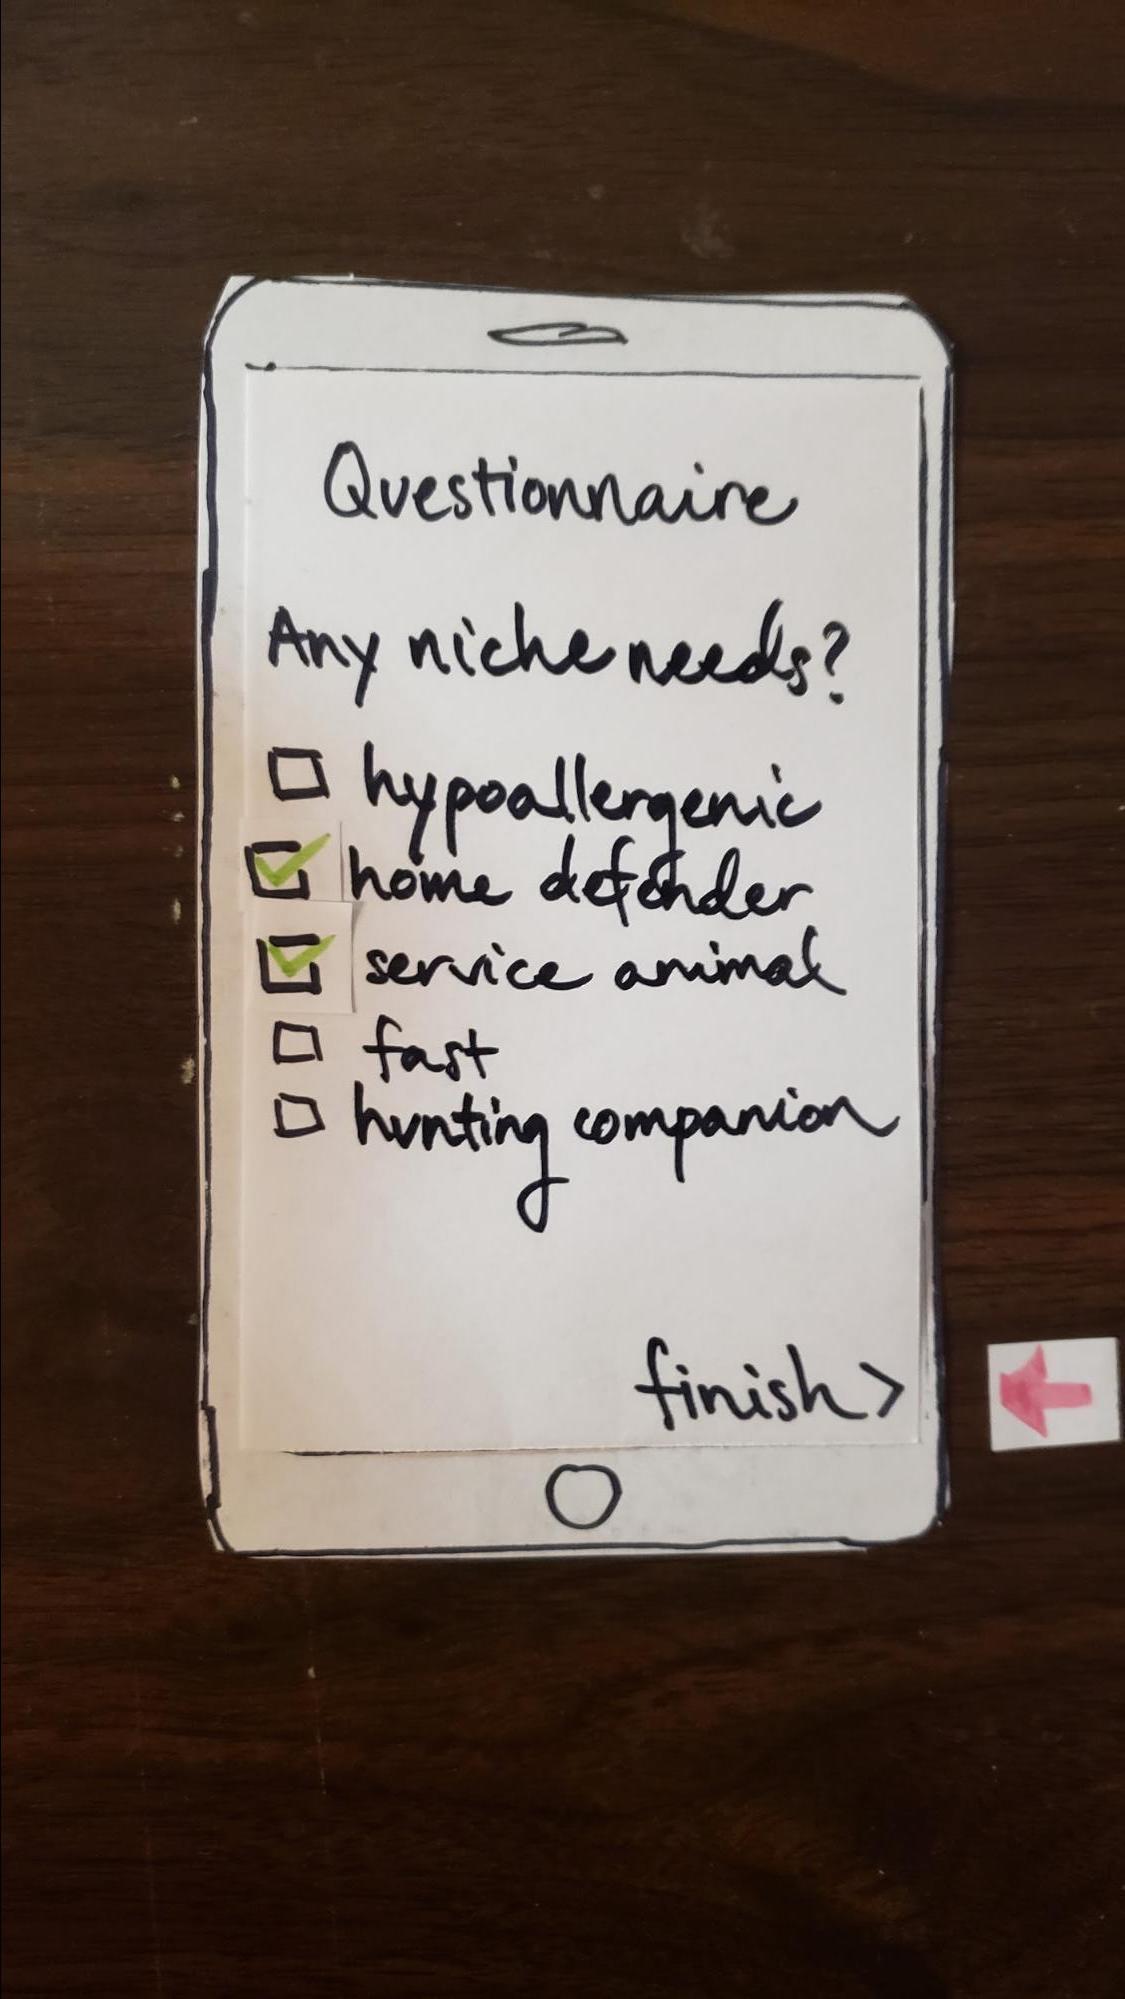 Questionnaire
Any niche needs?
hypoallergenic
home defender
service animal
fast
hunting companion
finish >